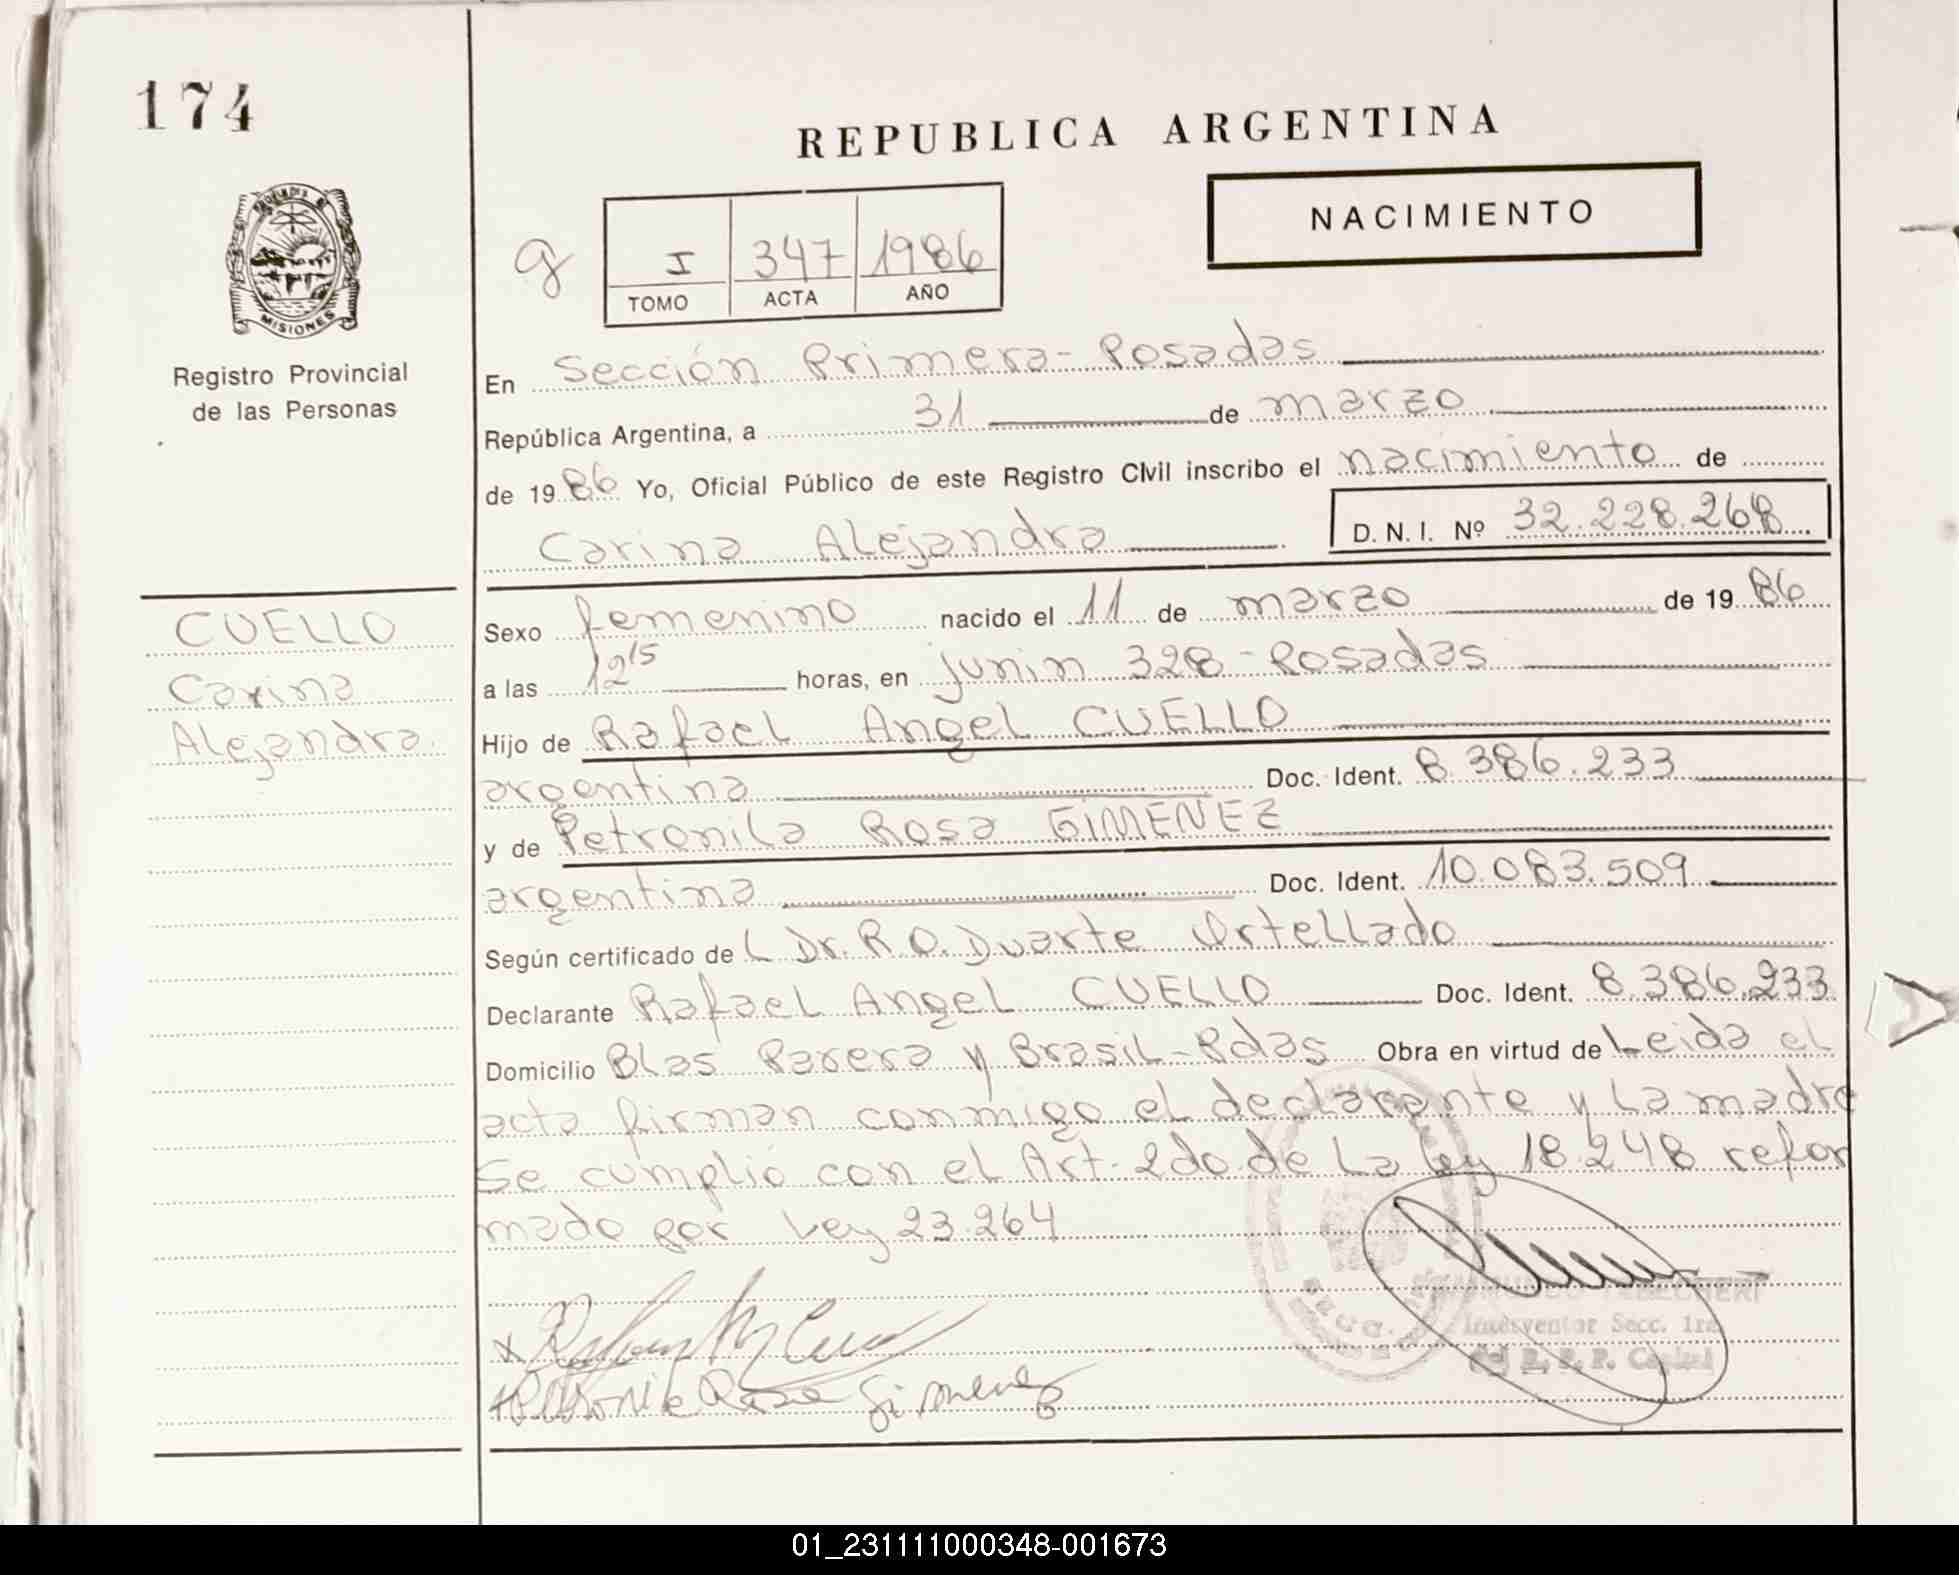 174
REPUBLICA ARGENTINA
NACIMIENTO
g
I 347 1986
TOMO ACTA AÑO
MISIONES
Registro Provincial
de las Personas
En Sección Primera - Posadas
República Argentina, a 31 de marzo
de 1986 Yo, Oficial Público de este Registro Civil inscribo el nacimiento de
Carina Alejandra D. N. I. Nº 32.228.268
CUELLO
Carina
Alejandra.
Sexo femenino nacido el 11 de marzo de 1986
a las 12 15 horas, en Junin 328 - Posadas
Hijo de Rafael Angel CUELLO
argentina Doc. Ident. 8.386.233
y de Petronila Rosa GIMENEZ
argentina Doc. Ident. 10.083.509
Según certificado de L Dr. R.O. Duarte Ortellado
Declarante Rafael Angel CUELLO Doc. Ident. 8.386.233
Domicilio Blas Parera y Brasil - Pdas Obra en virtud de Leida el
acta firman conmigo el declarante y la madre
Se cumplió con el Art. 2do de la Ley 18.248 refor
mado por Ley 23.264
Interventor Secc. 1ra
R. P. P. Capital
x
Rosa Gimenez
01_231111000348-001673